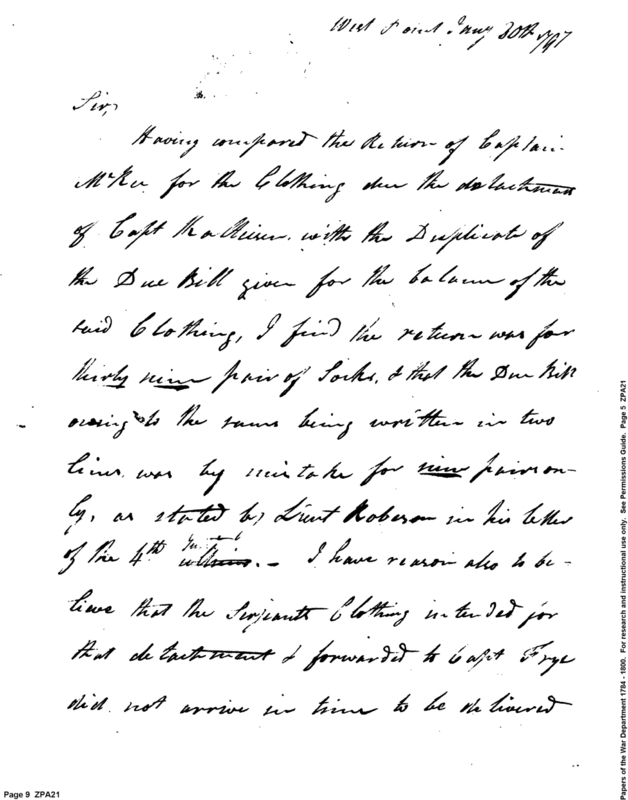 West Point Jany 30th 1797
Sir,
Having compared the Return of Captain
McKee for the Clothing due the detachment
of Capt with the Duplicate of
the Due Bill given for the balance of the
said Clothing, I find the return was for
thirty nine pair of Socks, & that the Due Bill
owing to the same being written in two
lines was by mistake for nine pairs on-
ly, as stated by Lieut Roberson in his letter
of the 4th Instant. – I have reason also to be-
lieve that the Serjeants Clothing intended for
that detachment & forwarded to Capt Frye
did not arrive in time to be delivered
Page 9 ZPA21
Papers of the War Department 1784 - 1800. For research and instructional use only. See Permissions Guide. Page 5 ZPA21